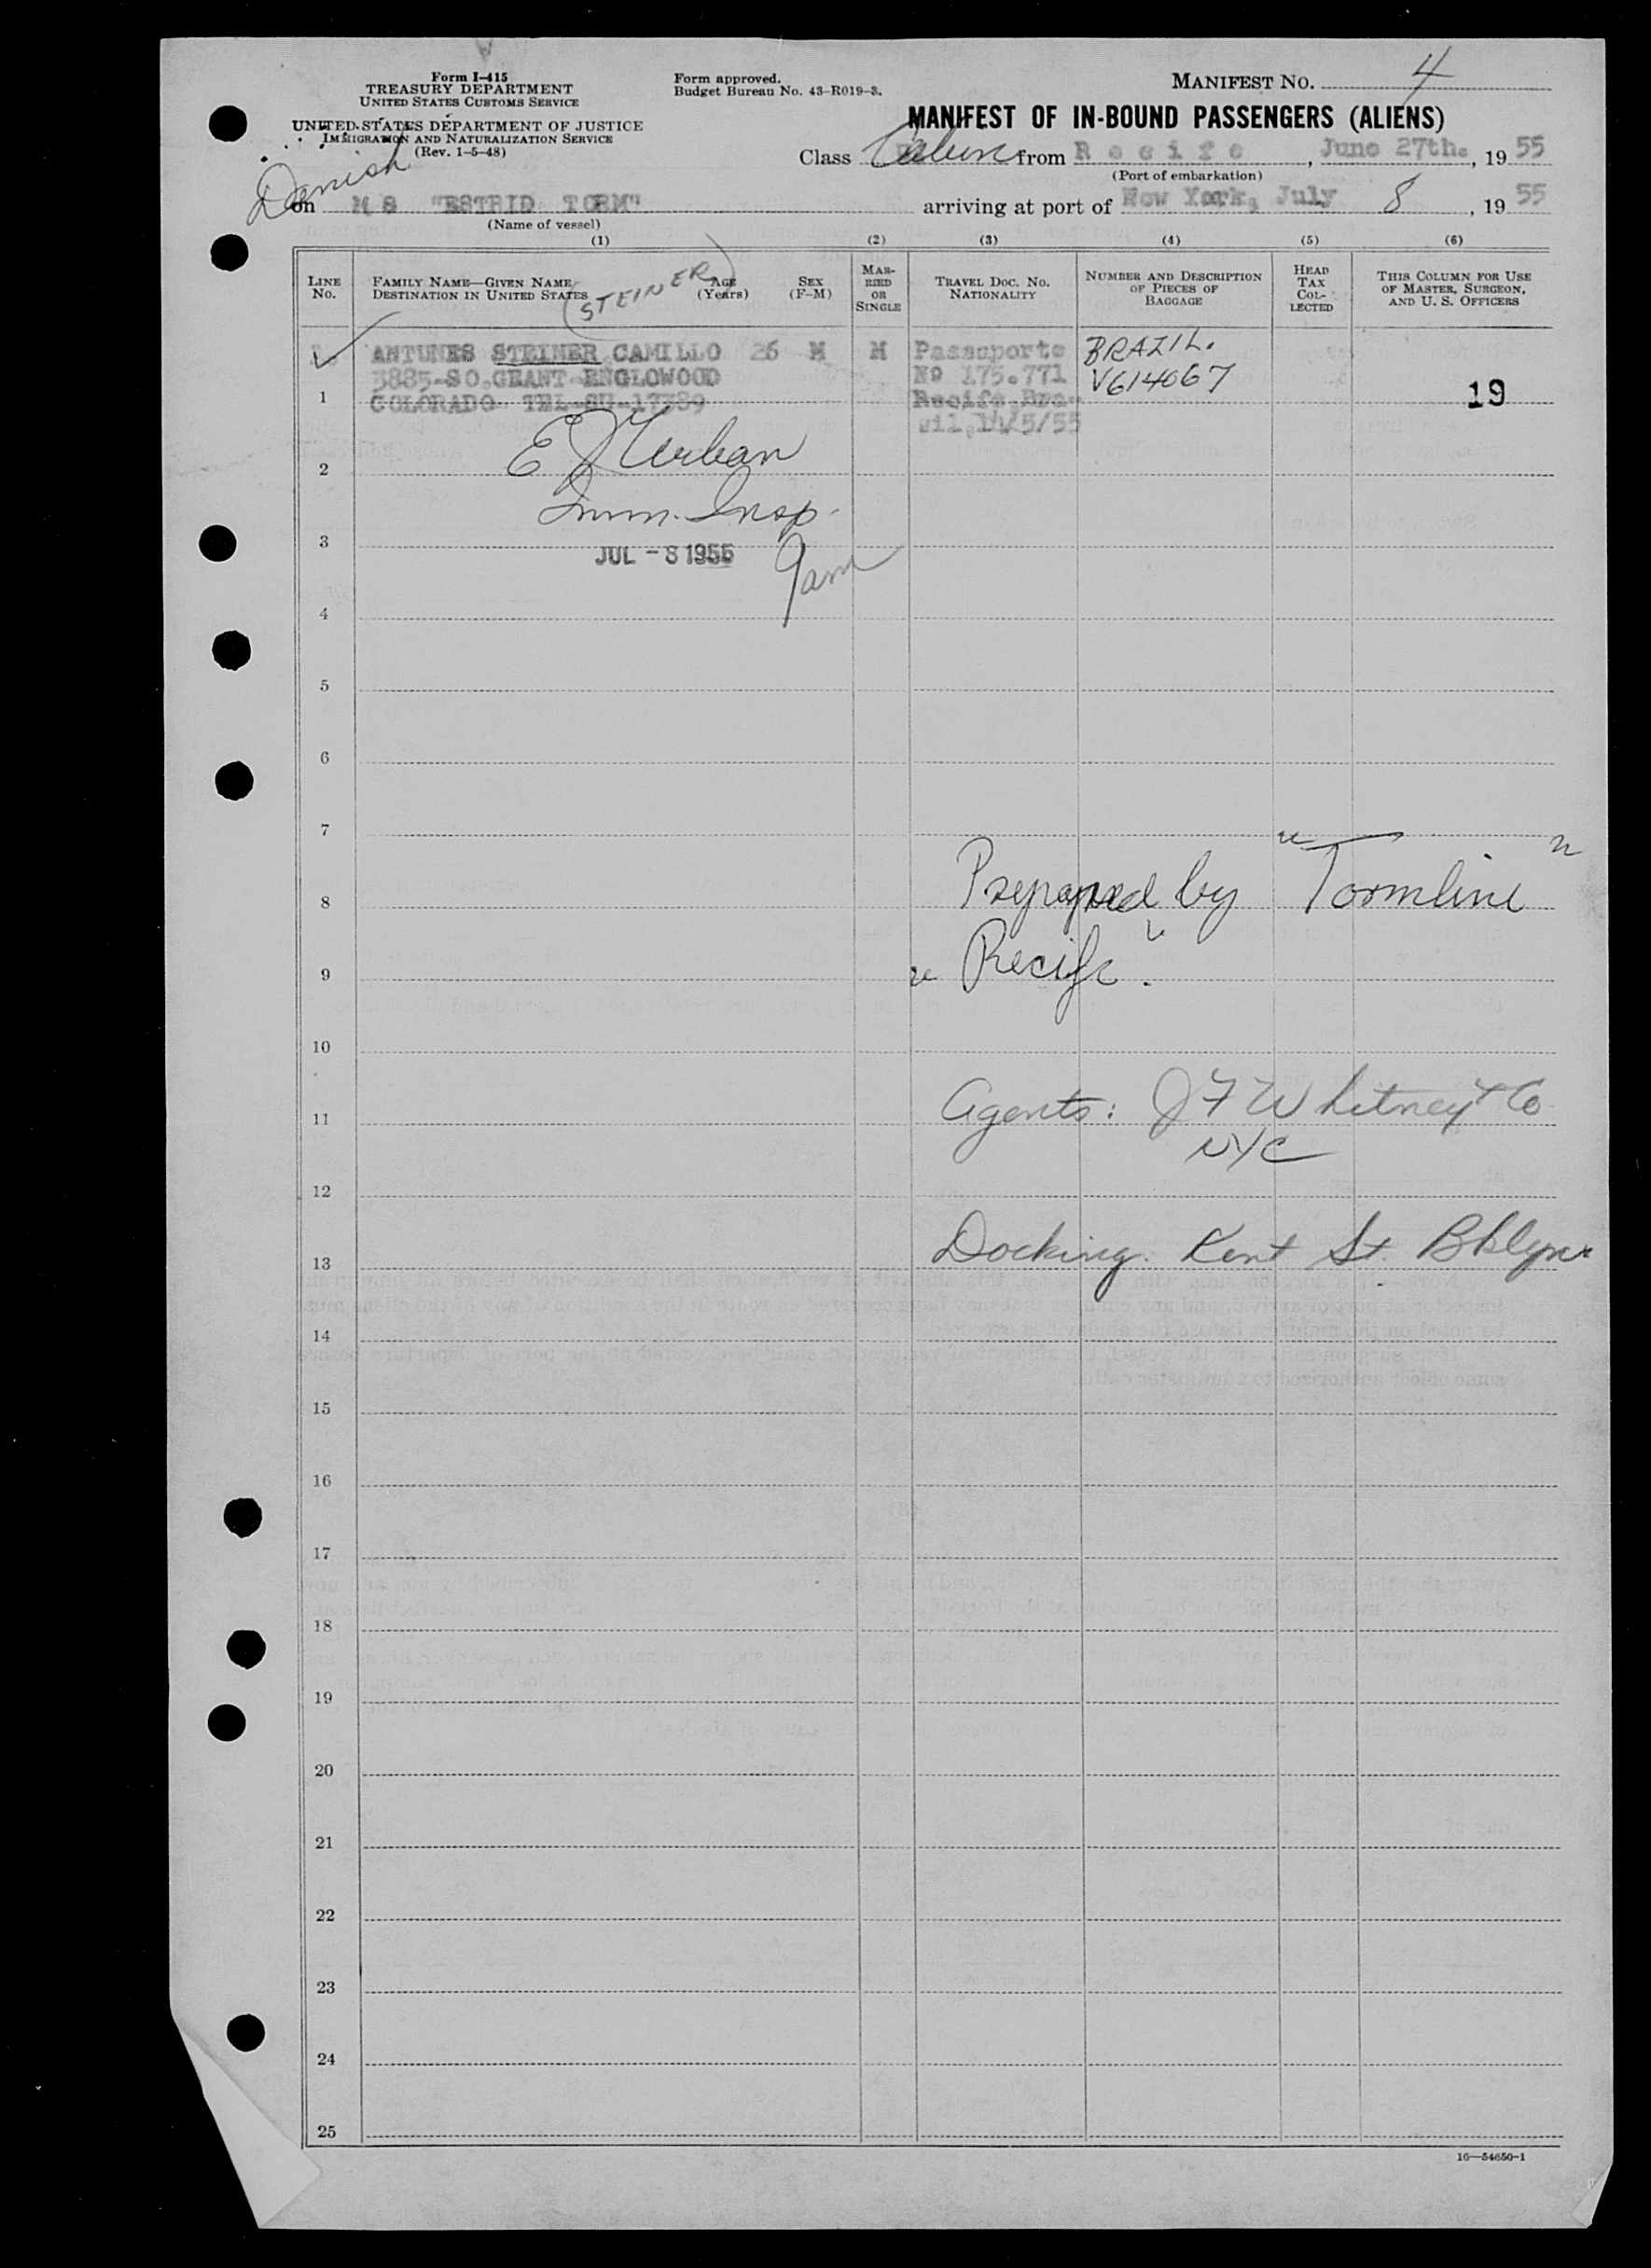 Form I-415
TREASURY DEPARTMENT
UNITED STATES CUSTOMS SERVICE
UNITED STATES DEPARTMENT OF JUSTICE
IMMIGRATION AND NATURALIZATION SERVICE
(Rev. 1-5-48)
Form approved.
Budget Bureau No. 43-R019-3.
MANIFEST NO. 4
MANIFEST OF IN-BOUND PASSENGERS (ALIENS)
Class Cabin from Recife, June 27th., 19 55
(Port of embarkation)
Danish
on MS "ESTRID TORM" arriving at port of New York, July 8, 19 55
(Name of vessel)
(1) (2) (3) (4) (5) (6)
LINE No.
FAMILY NAME—GIVEN NAME
DESTINATION IN UNITED STATES
(STEINER)
AGE (Years)
SEX (F-M)
MARRIED OR SINGLE
TRAVEL DOC. NO.
NATIONALITY
NUMBER AND DESCRIPTION OF PIECES OF BAGGAGE
HEAD TAX COLLECTED
THIS COLUMN FOR USE OF MASTER, SURGEON, AND U. S. OFFICERS
ANTUNES STEINER CAMILLO 26 M M Passaporte BRAZIL.
3885-SO.GRANT-ENGLOWOOD Nº 175.771 V614067
1 COLORADO TEL-SU-17389 Recife-Bra- 19
sil, 14/5/55
E J Urban
2
Imm. Insp.
3
JUL - 8 1955 9am
4
5
6
7
8 Prepared by "Tormline"
9 "Recife".
10
11 Agents: J F Whitney & Co
NYC
12
13 Docking: Kent St. Bklyn
14
15
16
17
18
19
20
21
22
23
24
25
16—54650-1